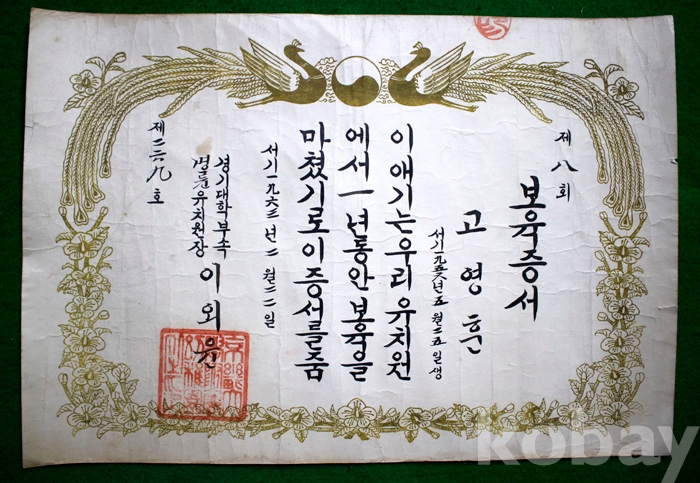 제八회
보육증서
고영훈
서기一九五八년五월二五일생
이애기는우리유치원
에서一년동안보육을
마쳤기로이증서를줌
서기一九六三년二월二二일
경기대학부속
유치원장 이외윤
제二六九호
kobay